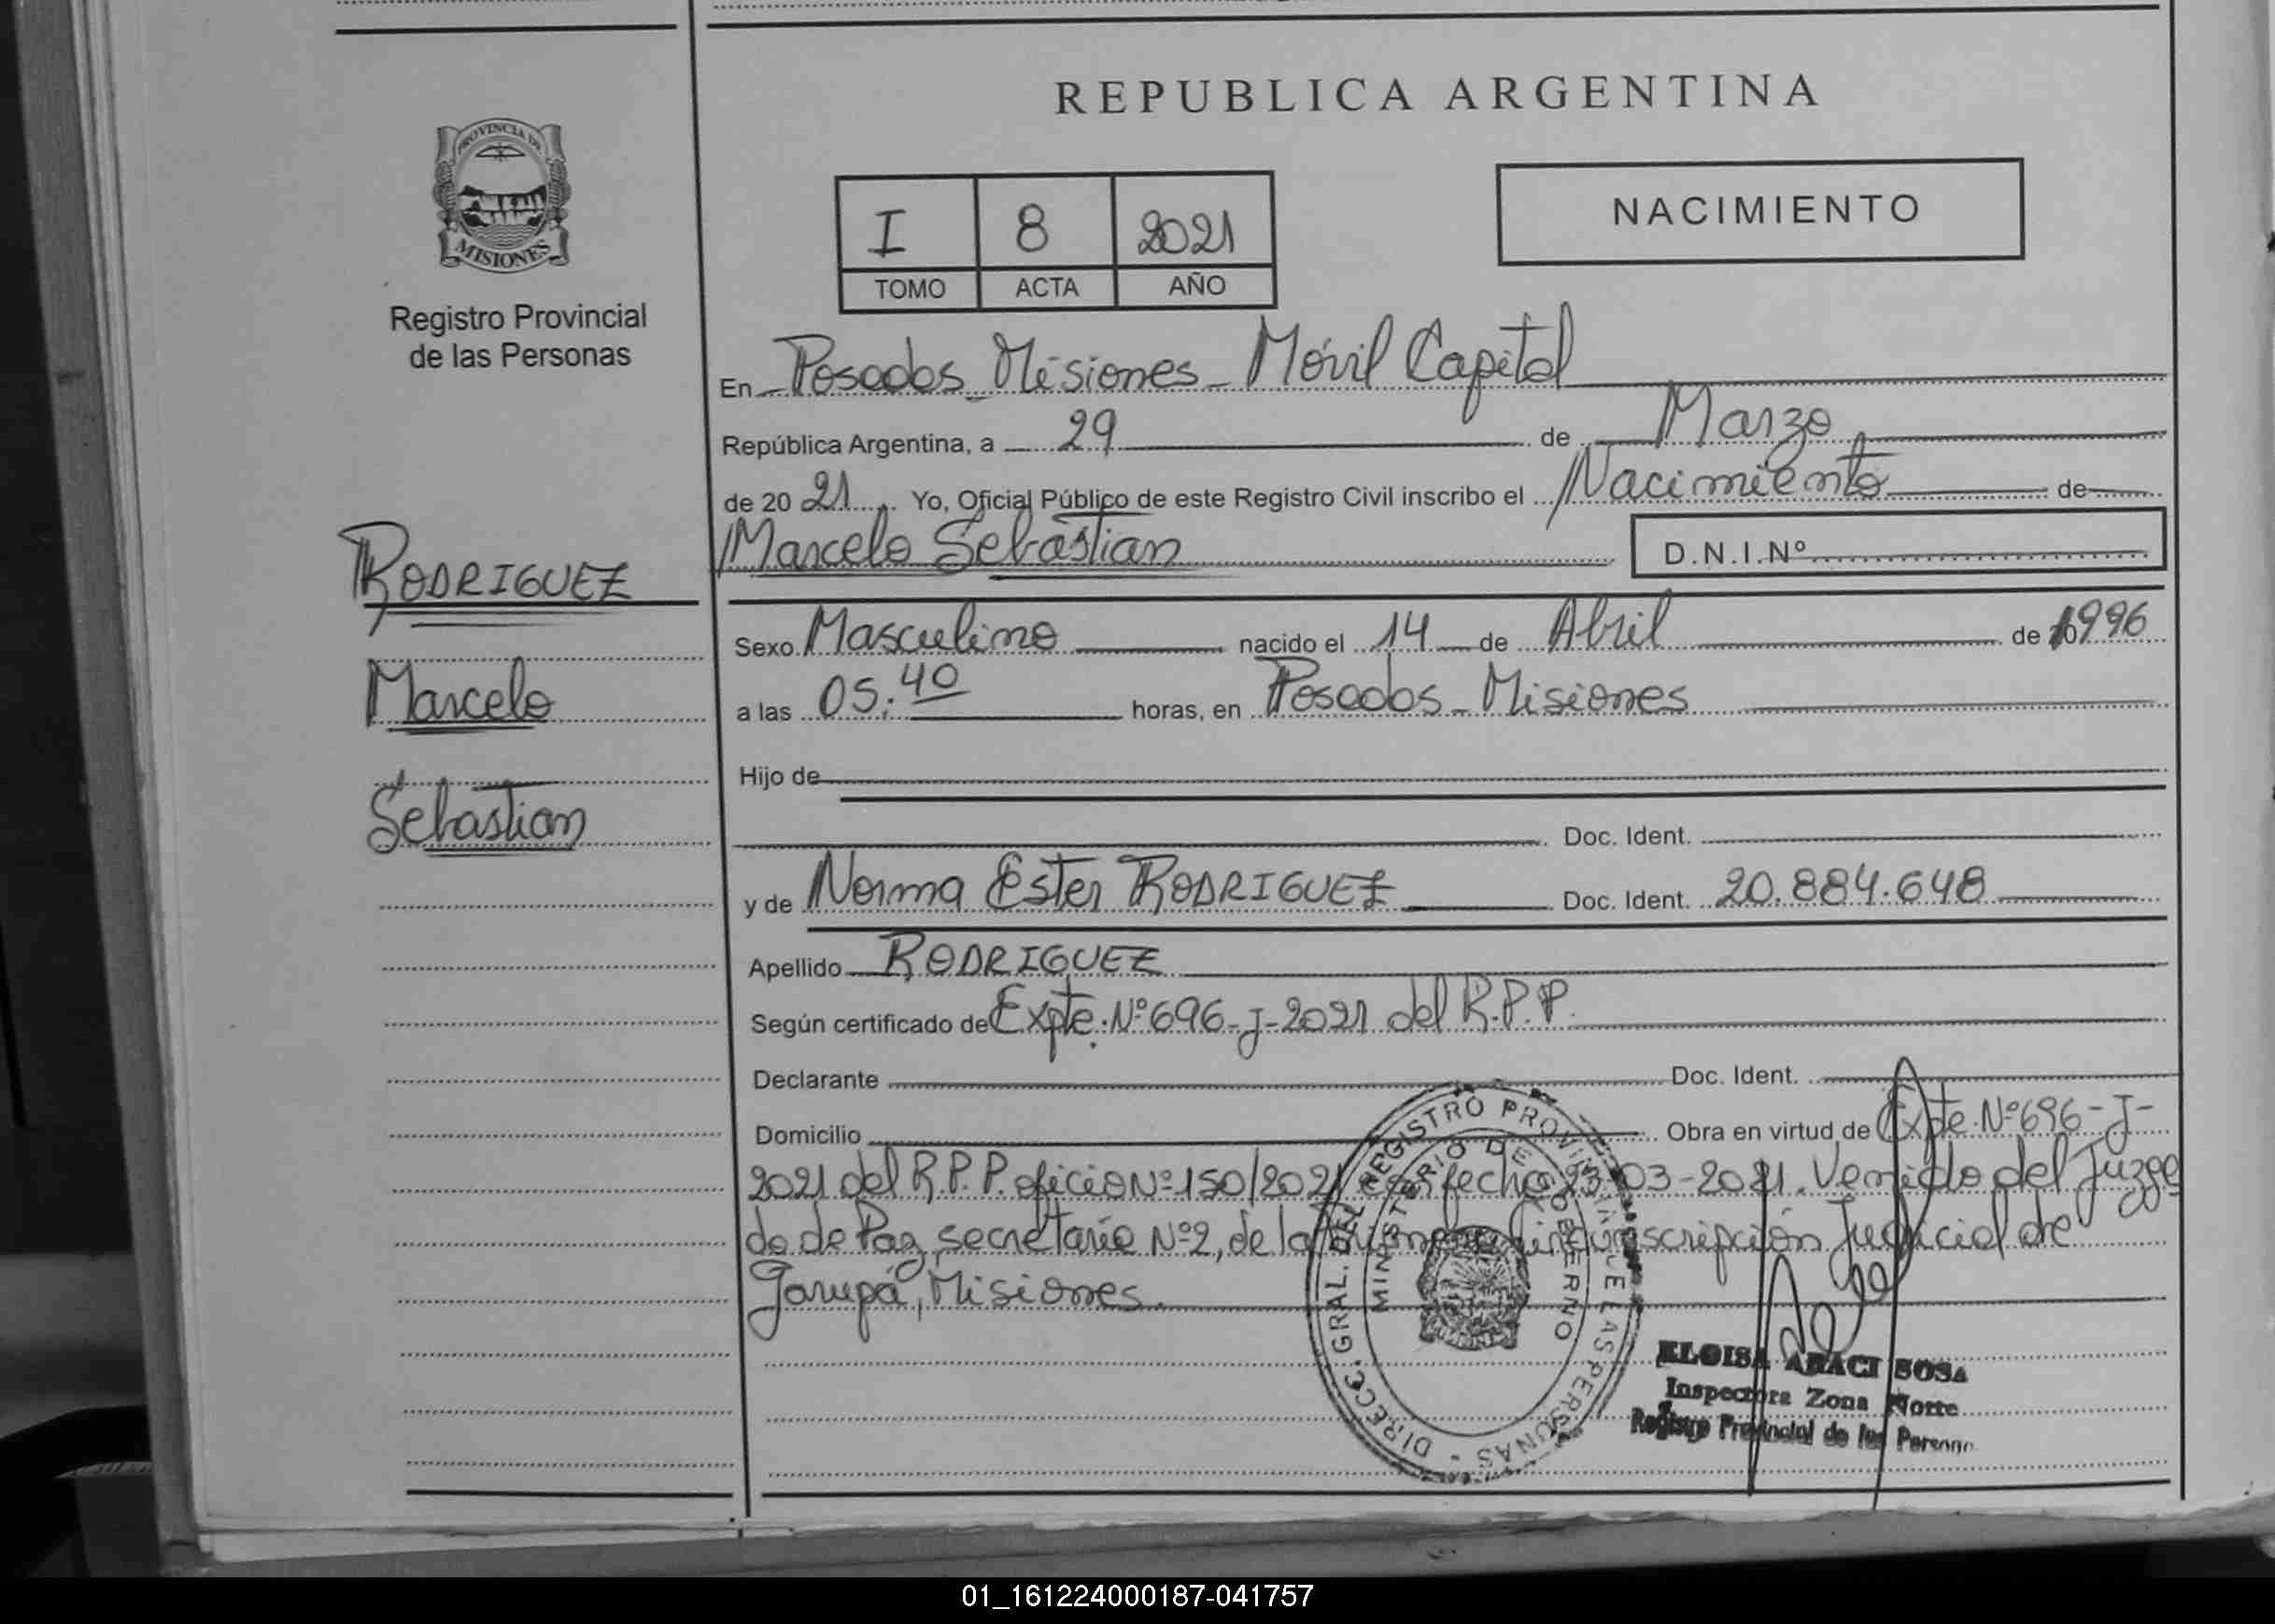 REPUBLICA ARGENTINA
PROVINCIA DE
MISIONES
Registro Provincial
de las Personas
I 8 2021
TOMO ACTA AÑO
NACIMIENTO
En Posadas Misiones - Móvil Capital
República Argentina, a 29 de Marzo
de 20 21 Yo, Oficial Público de este Registro Civil inscribo el Nacimiento de
Marcelo Sebastian D.N.I.Nº
RODRIGUEZ
Marcelo
Sebastian
Sexo Masculino nacido el 14 de Abril de 1996
a las 05:40 horas, en Posadas - Misiones
Hijo de
Doc. Ident.
y de Norma Ester RODRIGUEZ Doc. Ident. 20.884.648
Apellido RODRIGUEZ
Según certificado de Expte. Nº 696-J-2021 del R.P.P.
Declarante Doc. Ident.
Domicilio Obra en virtud de Expte. Nº 696-J-
2021 del R.P.P. oficio Nº 150/2021 fecha 23-03-2021. Venido del Juzga
do de Paz, secretaria Nº 2, de la Primera Circunscripción Judicial de
Garupá, Misiones.
DIRECC. GRAL. DEL REGISTRO PROVINCIAL DE LAS PERSONAS
MINISTERIO DE GOBIERNO
ELOISA ARACI SOSA
Inspectora Zona Norte
Registro Provincial de las Persona
01_161224000187-041757